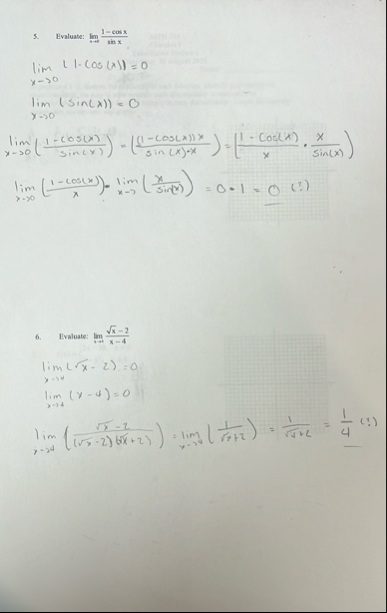 5. Evaluate: lim x→0 (1 − cos x)/(sin x)
lim x→0 (1 - cos(x)) = 0
lim x→0 (sin(x)) = 0
lim x→0 ((1 - cos(x))/(sin(x))) = (((1 - cos(x)) x)/(sin(x)·x)) = ((1 - cos(x))/x · x/(sin(x)))
lim x→0 ((1 - cos(x))/x) · lim x→ (x/(sin(x))) = 0 · 1 = 0 (!)
6. Evaluate: lim x→4 (√x − 2)/(x − 4)
lim x→4 (√x - 2) = 0
lim x→4 (x - 4) = 0
lim x→4 ((√x - 2)/((√x - 2)(√x + 2))) = lim x→4 (1/(√x + 2)) = 1/(√4 + 2) = 1/4 (!)